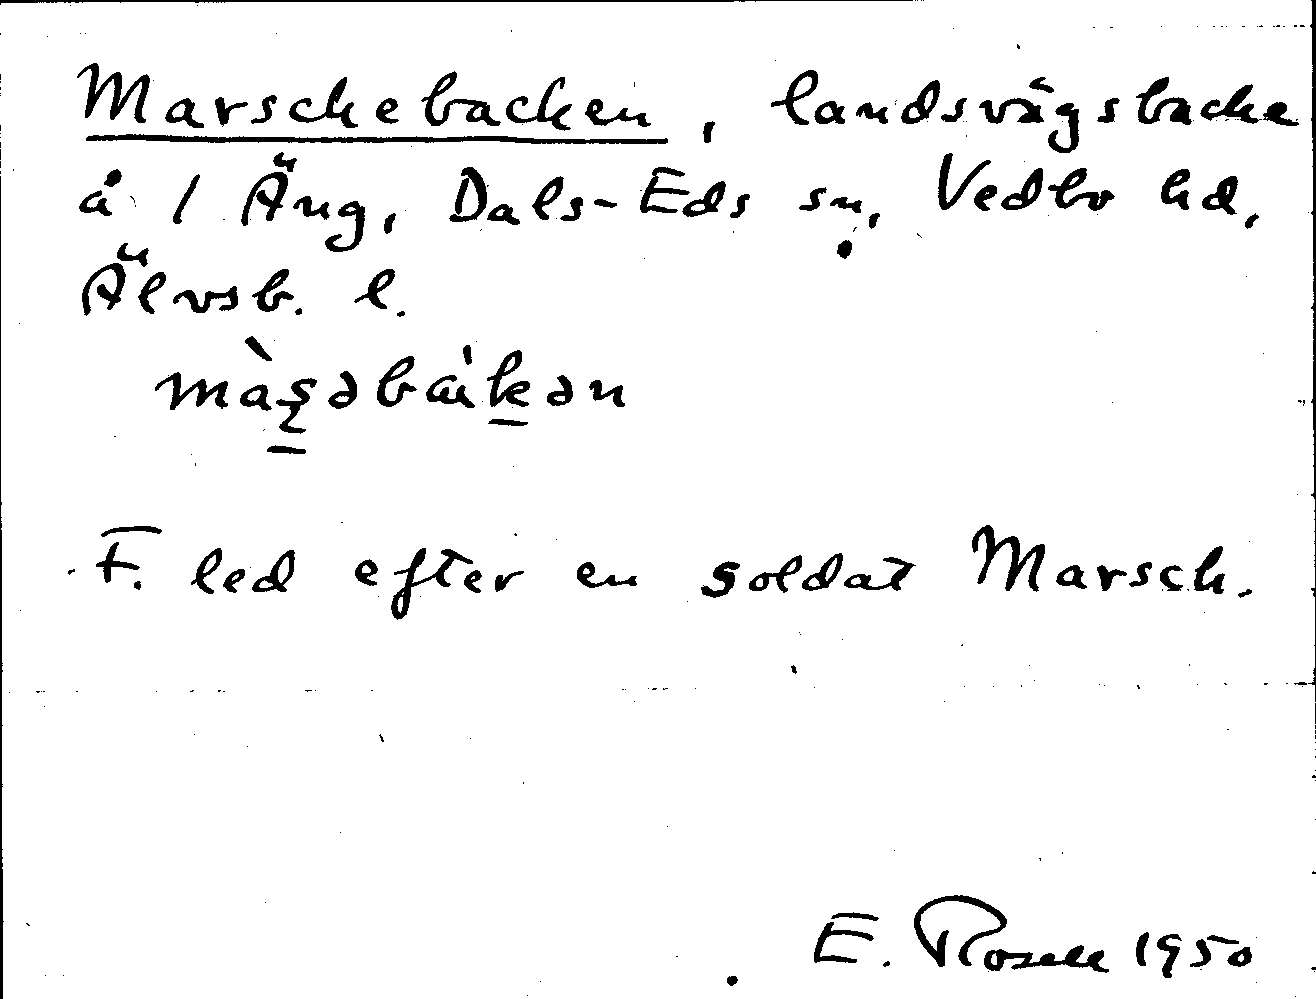 Marschebacken, landsvägsbacke
å 1 Äng, Dals-Eds sn, Vedbo hd,
Älvsb. l.
màʂəbàkən
F. led efter en soldat Marsch.
E. Rosell 1950